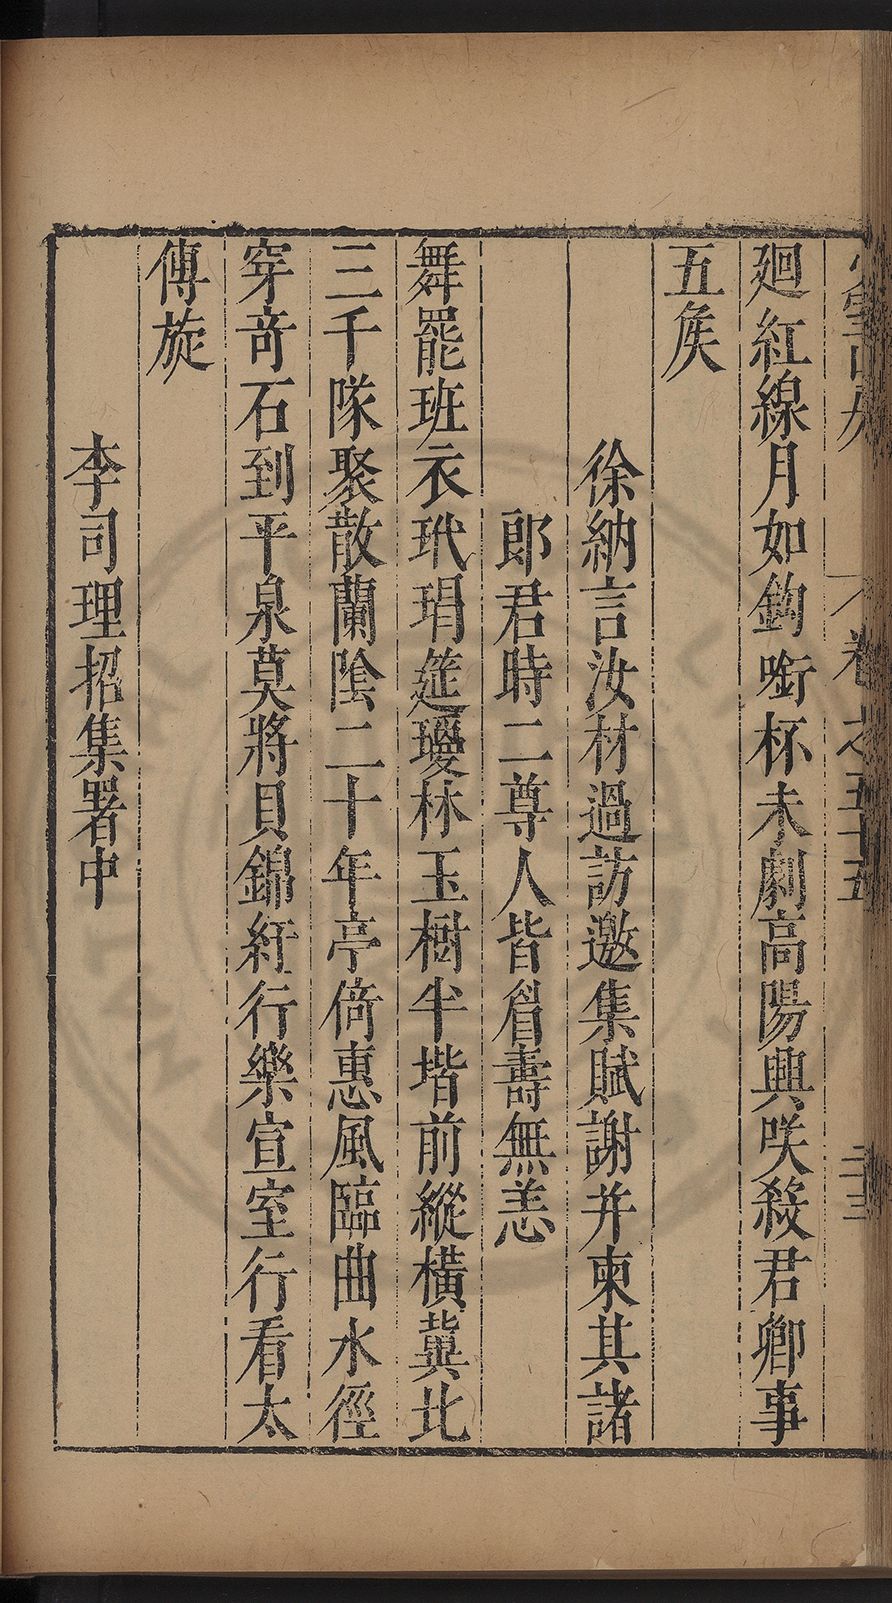 卷之五十五 二十三
廻紅線月如鉤㘅杯未劇高陽興咲殺君卿事
五矦
徐納言汝材過訪邀集賦謝并柬其諸
郎君時二尊人皆眉壽無恙
舞罷班衣玳瑁筵瓊林玉樹半堦前縱橫冀北
三千隊聚散蘭陰二十年亭倚惠風臨曲水徑
穿竒石到平泉莫將貝錦紆行樂宣室行看太
傅旋
李司理招集署中